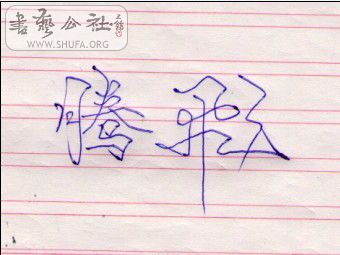 書藝公社
WWW.SHUFA.ORG
腾飛